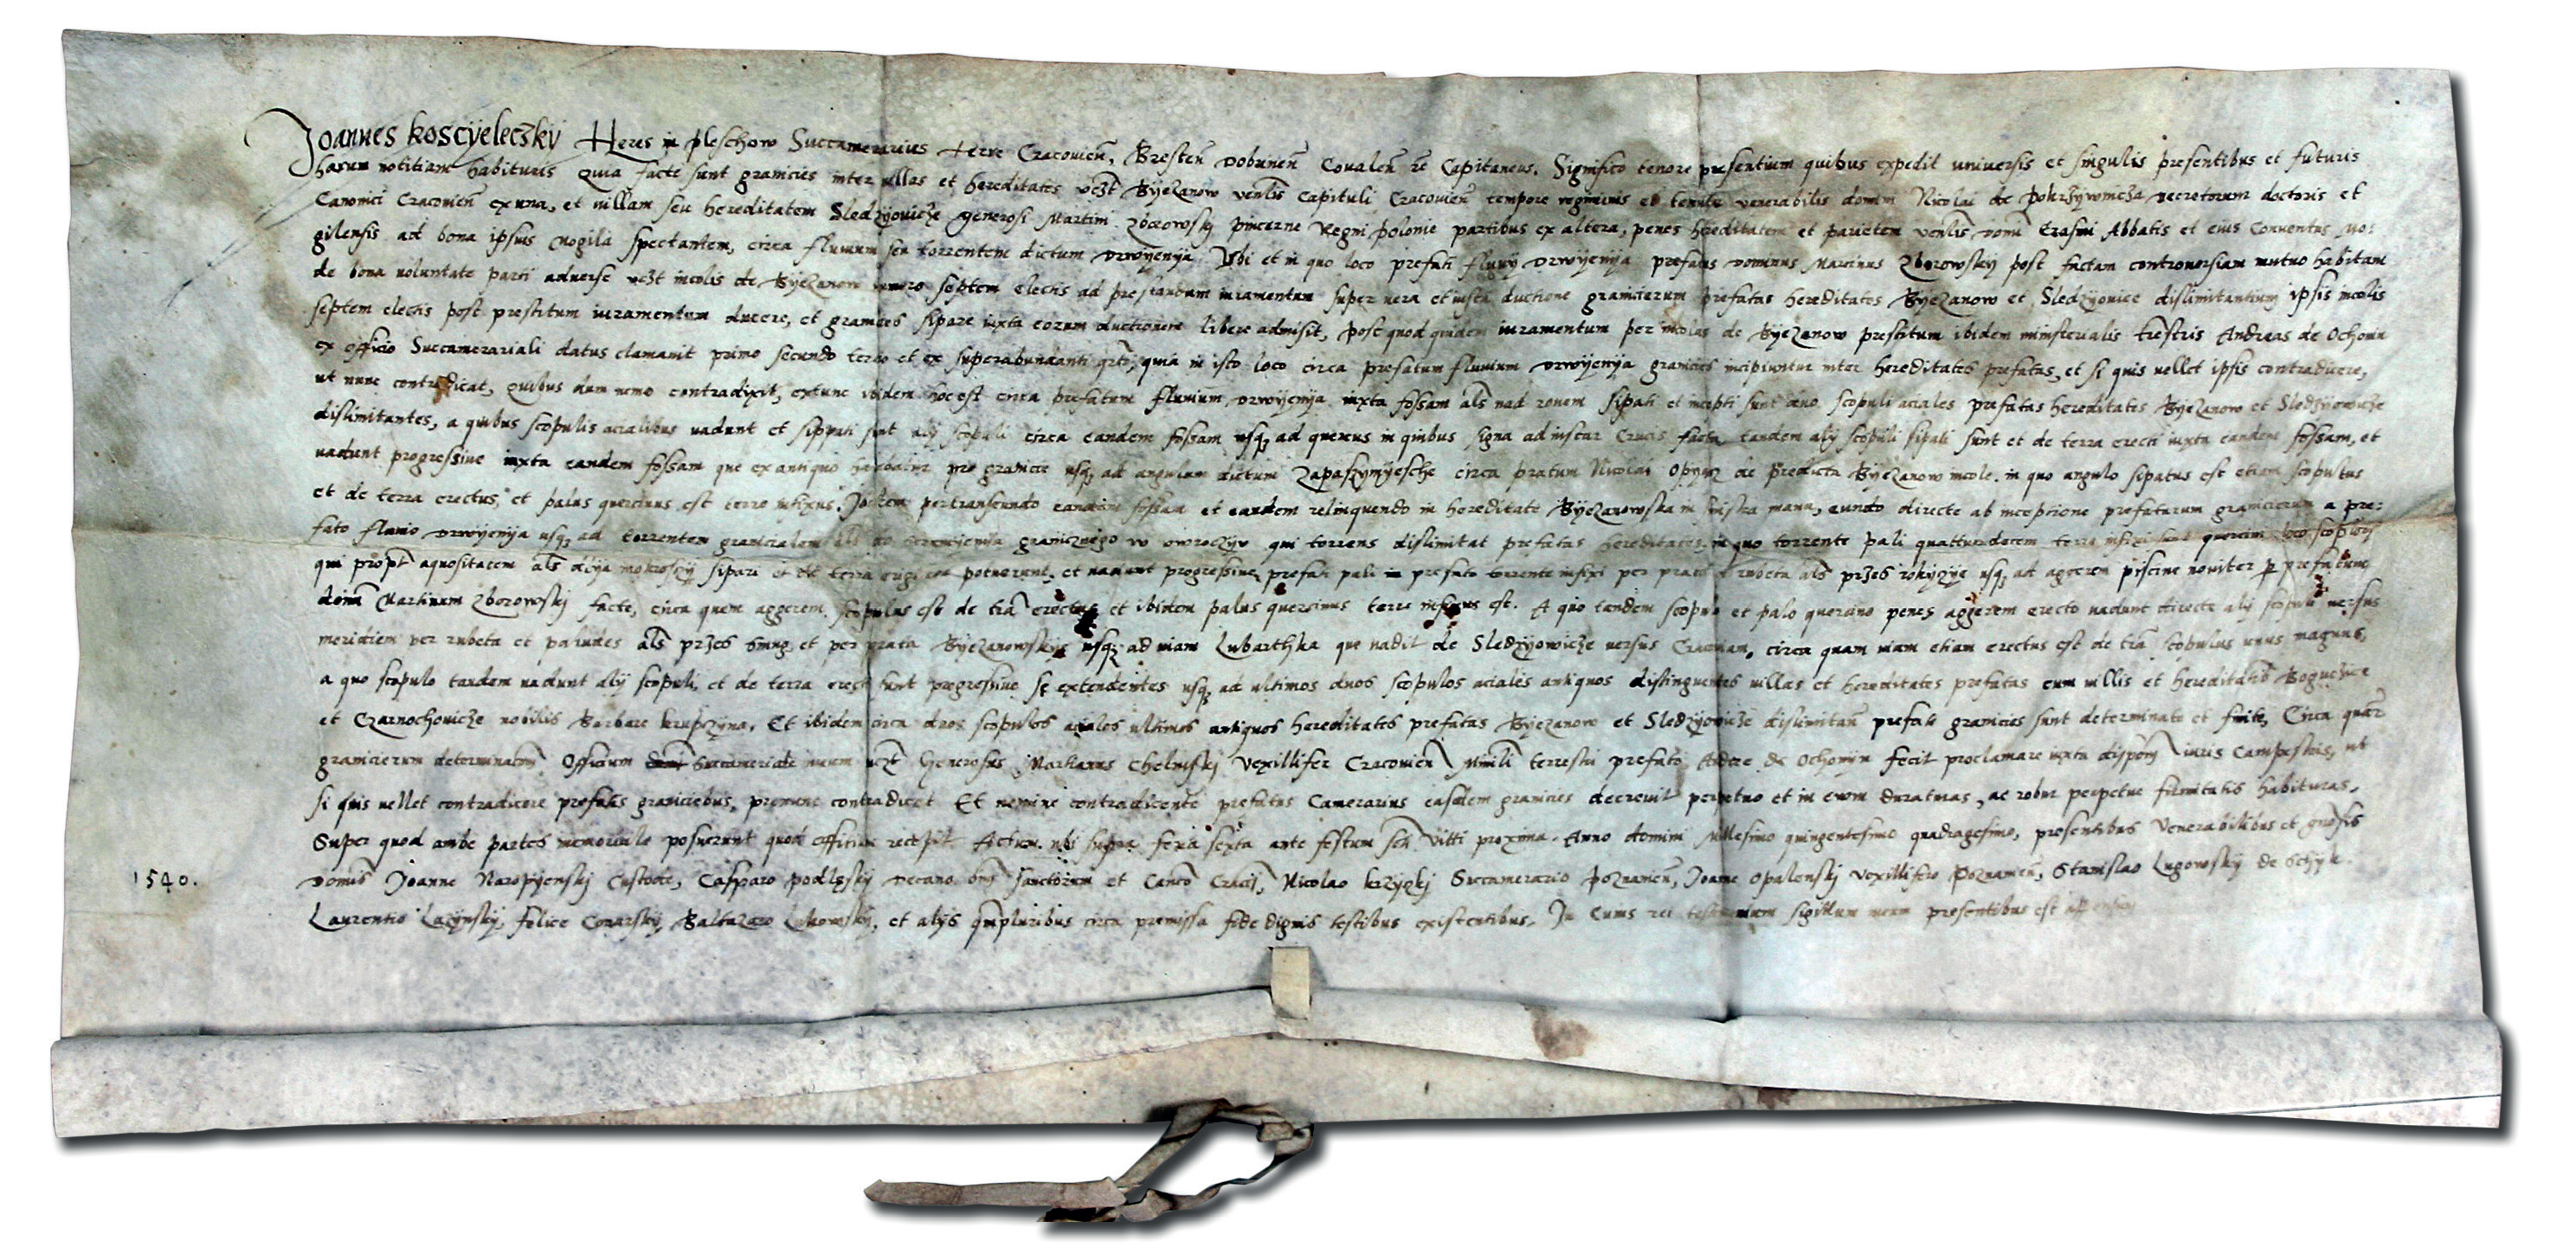 Joannes Koscyeleczky Heres in Pleschow Succamerarius terre Cracovien̄, Bresten̄ Dobrinen̄ Covalen̄ etc̄ Capitaneus. Significo tenore presentium quibus expedit universis et singulis presentibus et futuris
harum notitiam habituris Quia facte sunt granicies inter villas et hereditates vcȝt Byezanow venlis̄ Capituli Cracovien̄ tempore regiminis et tenute venerabilis domini Nicolai de Pokrzywnicza decretorum doctoris et
Canonici Cracovien̄ ex una, et villam seu hereditatem Sledzyowicze generosi Martini Zborowsky pincerne Regni Polonie partibus ex altera, penes hereditatem et parietem venlis̄ domī Erasmi Abbatis et eius Conventus Mo:
gilensis ad bona ipsius Mogila spectantem, circa fluvium seu torrentem dictum Drwyenya Ubi et in quo loco prefati fluvij Drwyenya prefatus dominus Martinus Zborowsky post factam controversiam mutuo habitam
de bona voluntate parti adverse vcȝt incolis de Byezanow numero septem electis ad prestandum iuramentum super vera et iusta ductione granicierum prefatas hereditates Byezanow et Sledzyowice dislimitantium ipsis incolis
septem electis post prestitum iuramentum ducere, et granicies sipare iuxta eorum ductionem libere admisit, post quod quidem iuramentum per incolas de Byezanow prestitum ibidem ministerialis trēstris Andreas de Ochonin
ex officio Succamerariali datus clamavit primo secundo tercio et ex superabundanti qrto, quia in isto loco circa prefatum fluvium Drwyenya granicies incipiuntur inter hereditates prefatas, et si quis vellet ipsis contradicere,
ut nunc contradicat, Quibus dum nemo contradixit, extunc ibidem hoc est circa prefatum fluvium Drwyenya iuxta fossam als̄ nad rowem sipati et incepti sunt duo scopuli aciales prefatas hereditates Byezanow et Sledzyowicze
dislimitantes, a quibus scopulis acialibus vadunt et sippati sunt alij scopuli circa eandem fossam usqȝ ad quercus in quibus signa ad instar Crucis facta tandem alij scopuli sipati sunt et de terra erecti iuxta eandem fossam, et
vadunt progressive iuxta eandem fossam que ex antiquo habebatur pro granicie usqȝ ad angulum dictum Zapaszynyesche circa pratum Nicolai de predicta Byezanow incole. in quo angulo sipatus est etiam scopulus
et de terra erectus, et palus quercinus est terre infixus. Jtem pertranseundo eandem fossam et eandem relinquendo in hereditate Byezanowska in sinistra manu, eundo directe ab inceptione prefatarum granicierum a pre:
fato fluvio Drwyenya usqȝ ad torrentem granicialem als̄ do strumyenya granicznego w owroczyv qui torrens dislimitat prefatas hereditates. in quo torrente pali quattuordecem terra infixi sunt quercini loco scopulorum
qui propt̄ aquositatem als̄ dlya mokroszy sipari et de terra erigi non potuerunt, et vadunt progressive prefati pali in prefato torrente infixi per prata et rubeta als̄ przes rokyczye usqȝ ad aggerem piscine noviter p prefatum
domū Martinum Zborowskj facte, circa quem aggerem scopulus est de trā erectus et ibidem palus quercinus terre infixus est. A quo tandem scopulo et palo quercino penes aggerem erecto vadunt directe alij scopuli versus
meridiem per rubeta et paludes als̄ przes smug et per prata Byezanowskye usqȝ ad viam Lubarthka que vadit de Sledzyowicze versus Cracoviam, circa quam viam etiam erectus est de trā scopulus unus magnus,
a quo scopulo tandem vadunt alij scopuli, et de terra erecti sunt progressive se extendentes usqȝ ad ultimos duos scopulos aciales antiquos distinguentes villas et hereditates prefatas cum villis et hereditatibȝ Boguczice
et Czarnochovicze nobilis Barbare Krupczyna. Et ibidem circa duos scopulos aciales ultimos antiquos hereditates prefatas Byezanow et Sledzyowicze dislimitan̄ prefate granicies sunt determinate et finite, Circa quar̄
granicierum determinacōn̄ Officium Succamerariale meum vcȝt Generosus Martianus Chelmskj Vexillifer Cracovien̄ Minl̄i terrestri prefato Andree de Ochonyn fecit proclamare iuxta dispōnj iuris Campestris, ut
si quis vellet contradicere prefatis graniciebus, pronunc contradicat Et nemine contradicente prefatus Camerarius easdem granicies decrevit perpetuo et in evum duraturas, ac robur perpetue firmitatis habituras.
Super quod ambe partes memoriale posuerunt quod officium recepit. Actum ubi supra feria sexta ante festum sctī Vitti proxima. Anno domini Millesimo quingentesimo quadragesimo, presentibus Venerabilibus et grōsis
1540. Domīs Joanne Naropyenskj Custode, Casparo Podlsky Decano omī Sanctorum et Canco Cracj, Nicolao Krzyczkj Succamerario Poznanien̄, Joanne Opalenskj Vexillifero Poznanien̄, Stanislao Lugowskij de Schyk
Laurentio Lazynskij, Felice Conarskij, Baltazaro Lukowskij, et alijs qmpluribus circa premissa fide dignis testibus existentibus. Jn Cuius rei testimonium sigillum meum presentibus est appensum